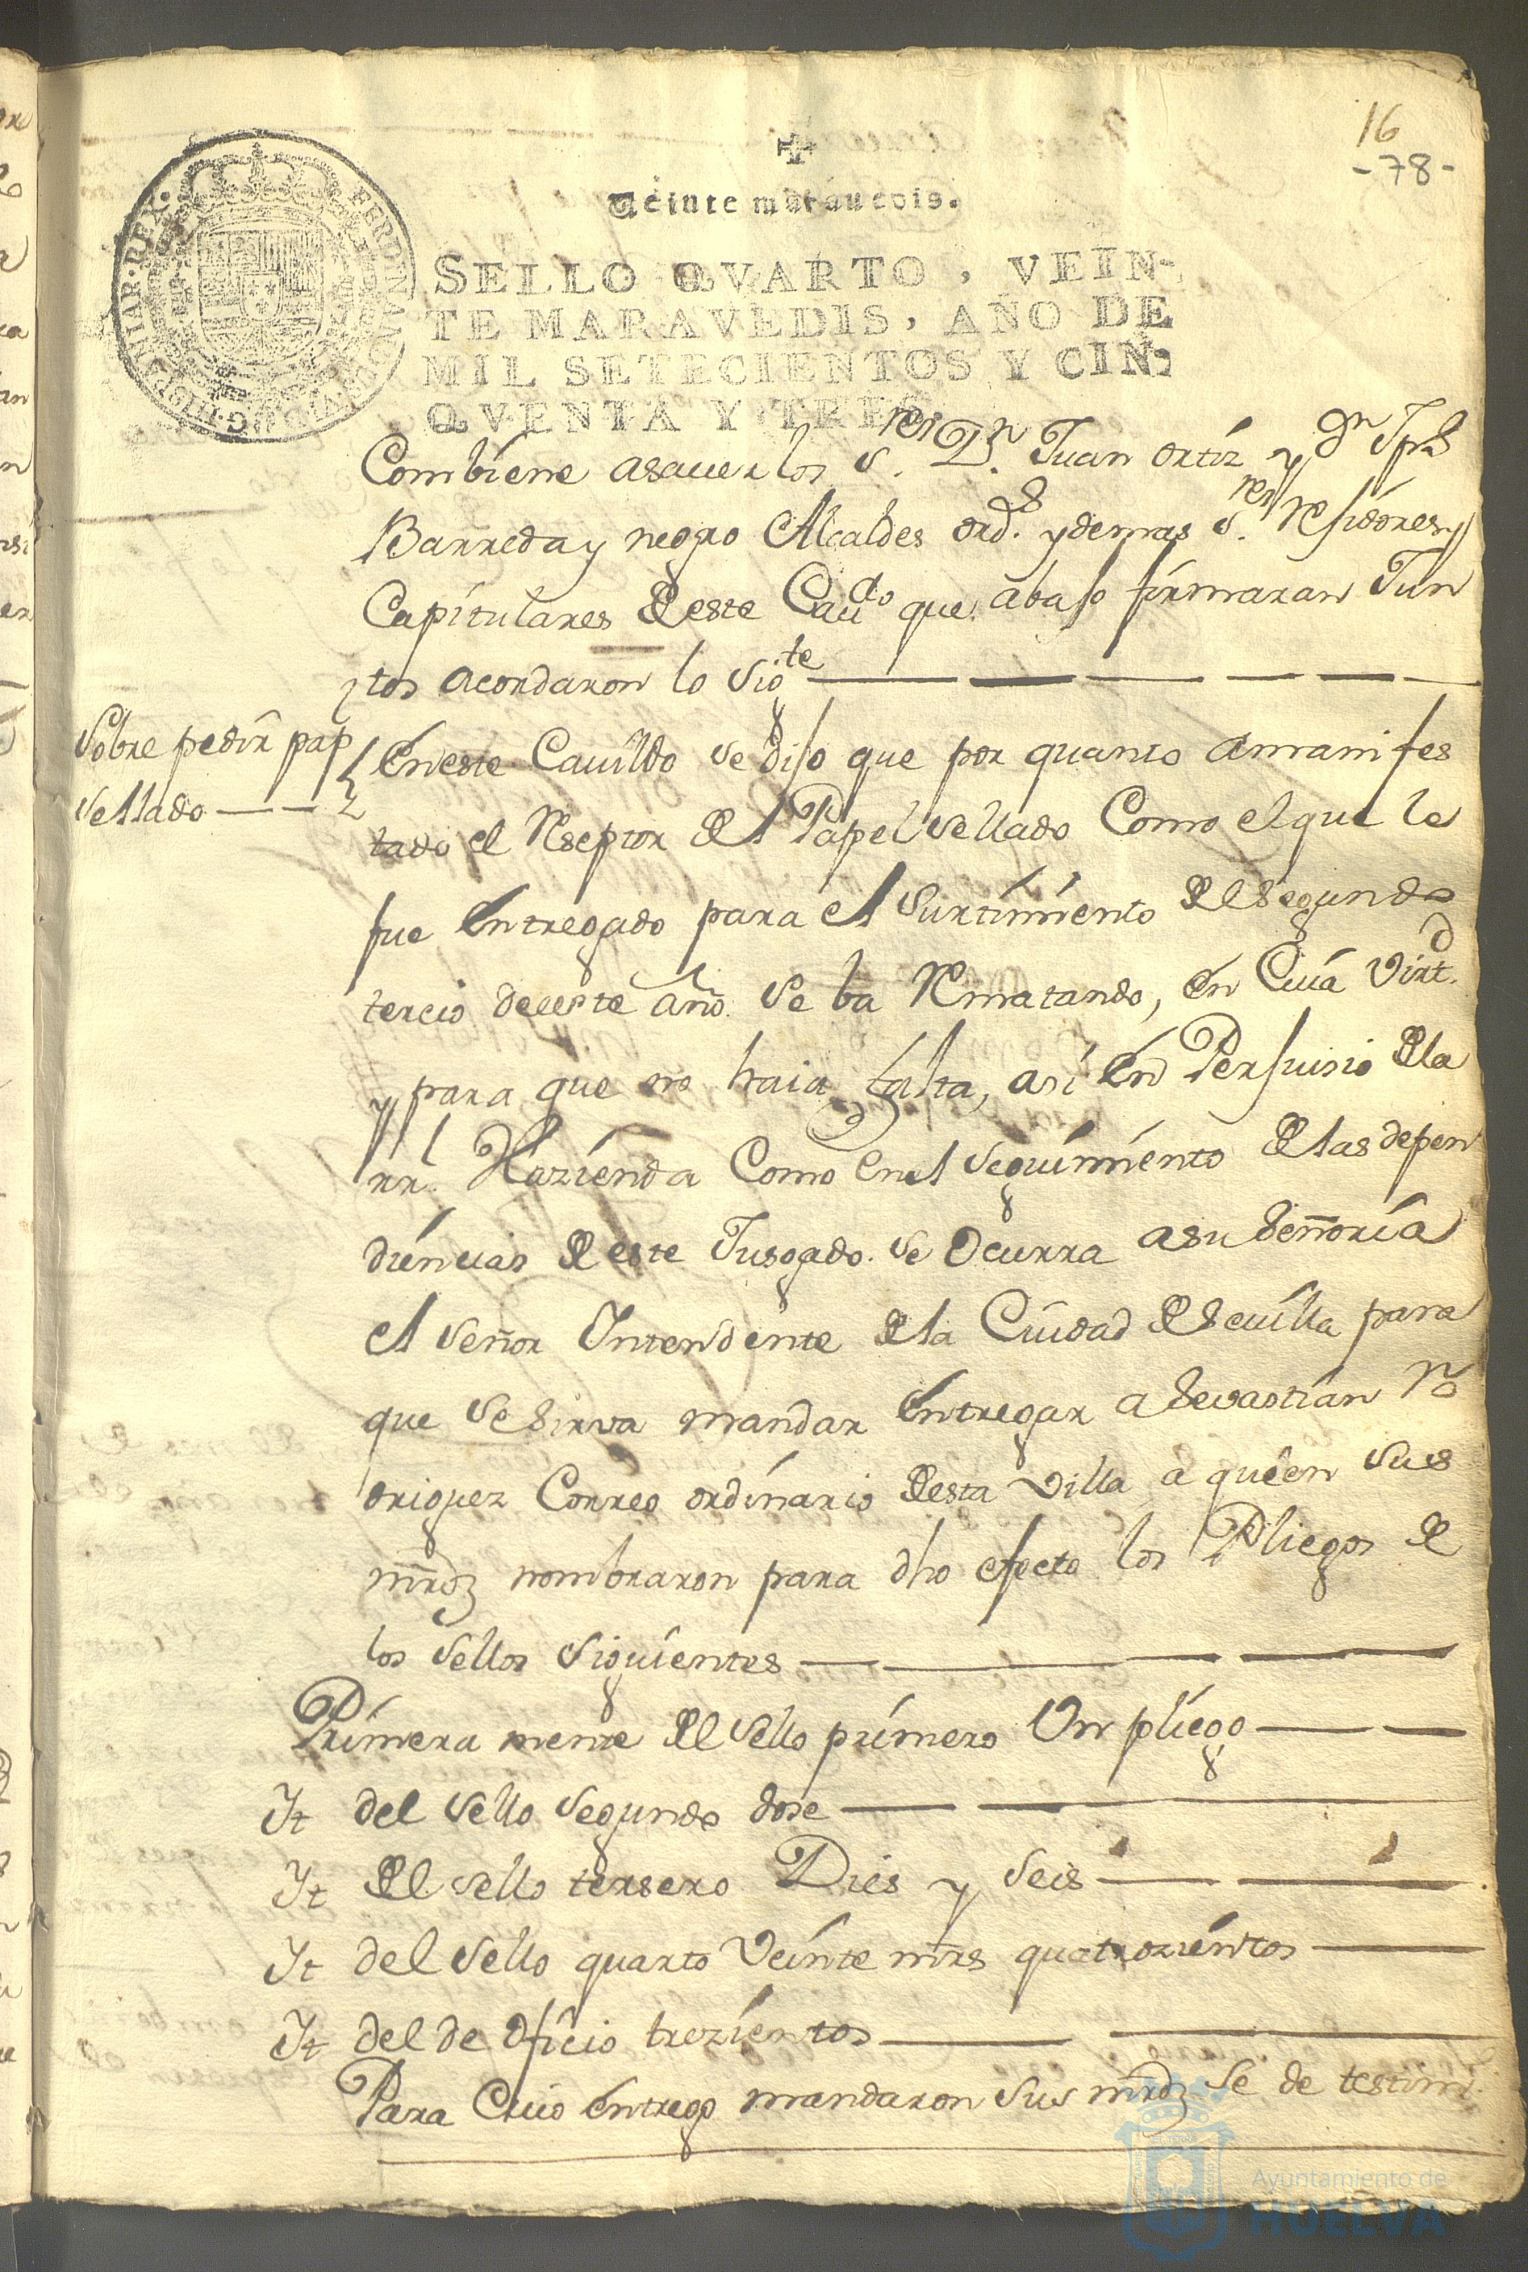 16
-78-
✠
Veinte maravedis.
SELLO QVARTO, VEIN-
TE MARAVEDIS, AÑO DE
MIL SETECIENTOS Y CIN-
QVENTA Y TRES.
Combiene a saver los s.res D.n Juan Ortiz y Dn
Barreda y negro Alcaldes ord.s y demas s.res Residores y
Capitulares de este Cavdo que abajo firmaran Jun
tos acordaron lo sigte
Sobre pedir pap
sellado
En este Cavildo se dijo que por quanto a manifes
tado el Reseptor del Papel sellado Como el que le
fue Entregado para el surtimiento del segundo
tercio de este año se ba Rematando, en Cuia virtd
y para que no haia falta, asi en Perjuisio de la
rl Hazienda Como en el seguimiento de las depen
diencias de este Jusgado se Ocurra a su señoria
el señor Yntendente de la Ciudad de Sevilla para
que se sirva mandar Entregar a Sevastian Ro
driguez Correo ordinario de esta villa a quien sus
mrdz nombraron para dho efecto los Pliegos de
los sellos siguientes
Primera mente del sello primero Un pliego
Yt del sello segundo dose
Yt del sello tersero Dies y seis
Yt del sello quarto Veinte mrs quatrozientos
Yt del de oficio trezientos
Para Cuio entrego mandaron sus mrdz se de testimi
Ayuntamiento de
HUELVA